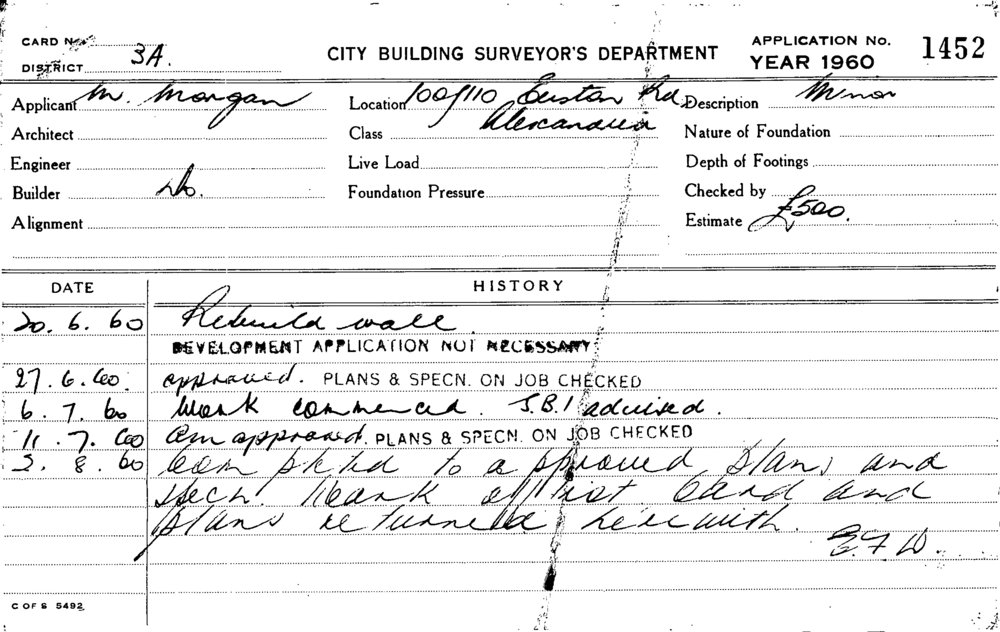 CARD No.
DISTRICT 3A.
CITY BUILDING SURVEYOR'S DEPARTMENT
APPLICATION No. 1452
YEAR 1960
Applicant M. Morgan
Location 100/110 Euston Rd.
Alexandria
Description Minor
Architect
Class
Nature of Foundation
Engineer
Live Load
Depth of Footings
Builder do.
Foundation Pressure
Checked by
Alignment
Estimate £500.
DATE HISTORY
20. 6. 60 Rebuild wall.
DEVELOPMENT APPLICATION NOT NECESSARY
27. 6. 60. approved. PLANS & SPECN. ON JOB CHECKED
6. 7. 60 Work commenced. J.B.I advised.
11. 7. 60 Am approved. PLANS & SPECN. ON JOB CHECKED
3. 8. 60 Completed to approved plans and
specn. Mark off list. Card and
plans returned herewith.
C OF S 5492